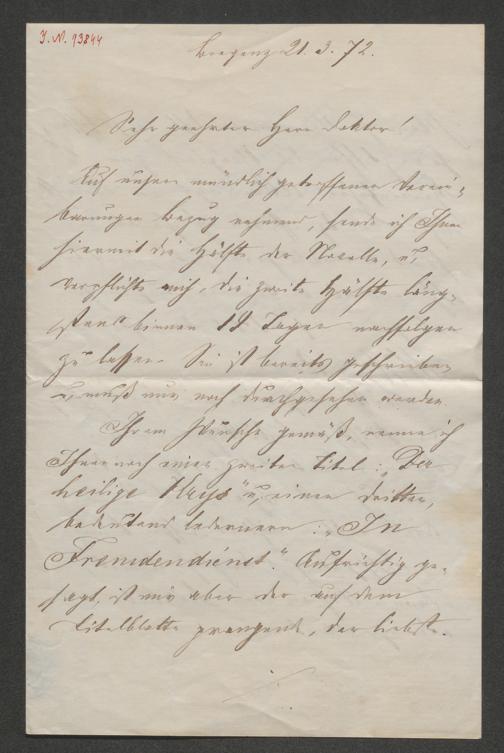 I. N. 93844
Bregenz 21. 3. 72.
Sehr geehrter Herr Doktor!
Auf unsere mündlich getroffenen Verein-
barungen Bezug nehmend, sende ich Ihnen
hiermit die Hälfte der Novelle, u.
verpflichte mich, die zweite Hälfte läng-
stens binnen 12 Tagen nachfolgen
zu lassen. Sie ist bereits geschrieben
u. muß nur noch durchgesehen werden
Ihrem Wunsche gemäß, nenne ich
Ihnen noch einen zweiten Titel: „Der
heilige Krys" u. einen dritten,
bedeutend ledernern: „In
Fremdendienst." Aufrichtig ge-
sagt, ist mir aber der auf dem
Titelblatte prangende, der liebste.